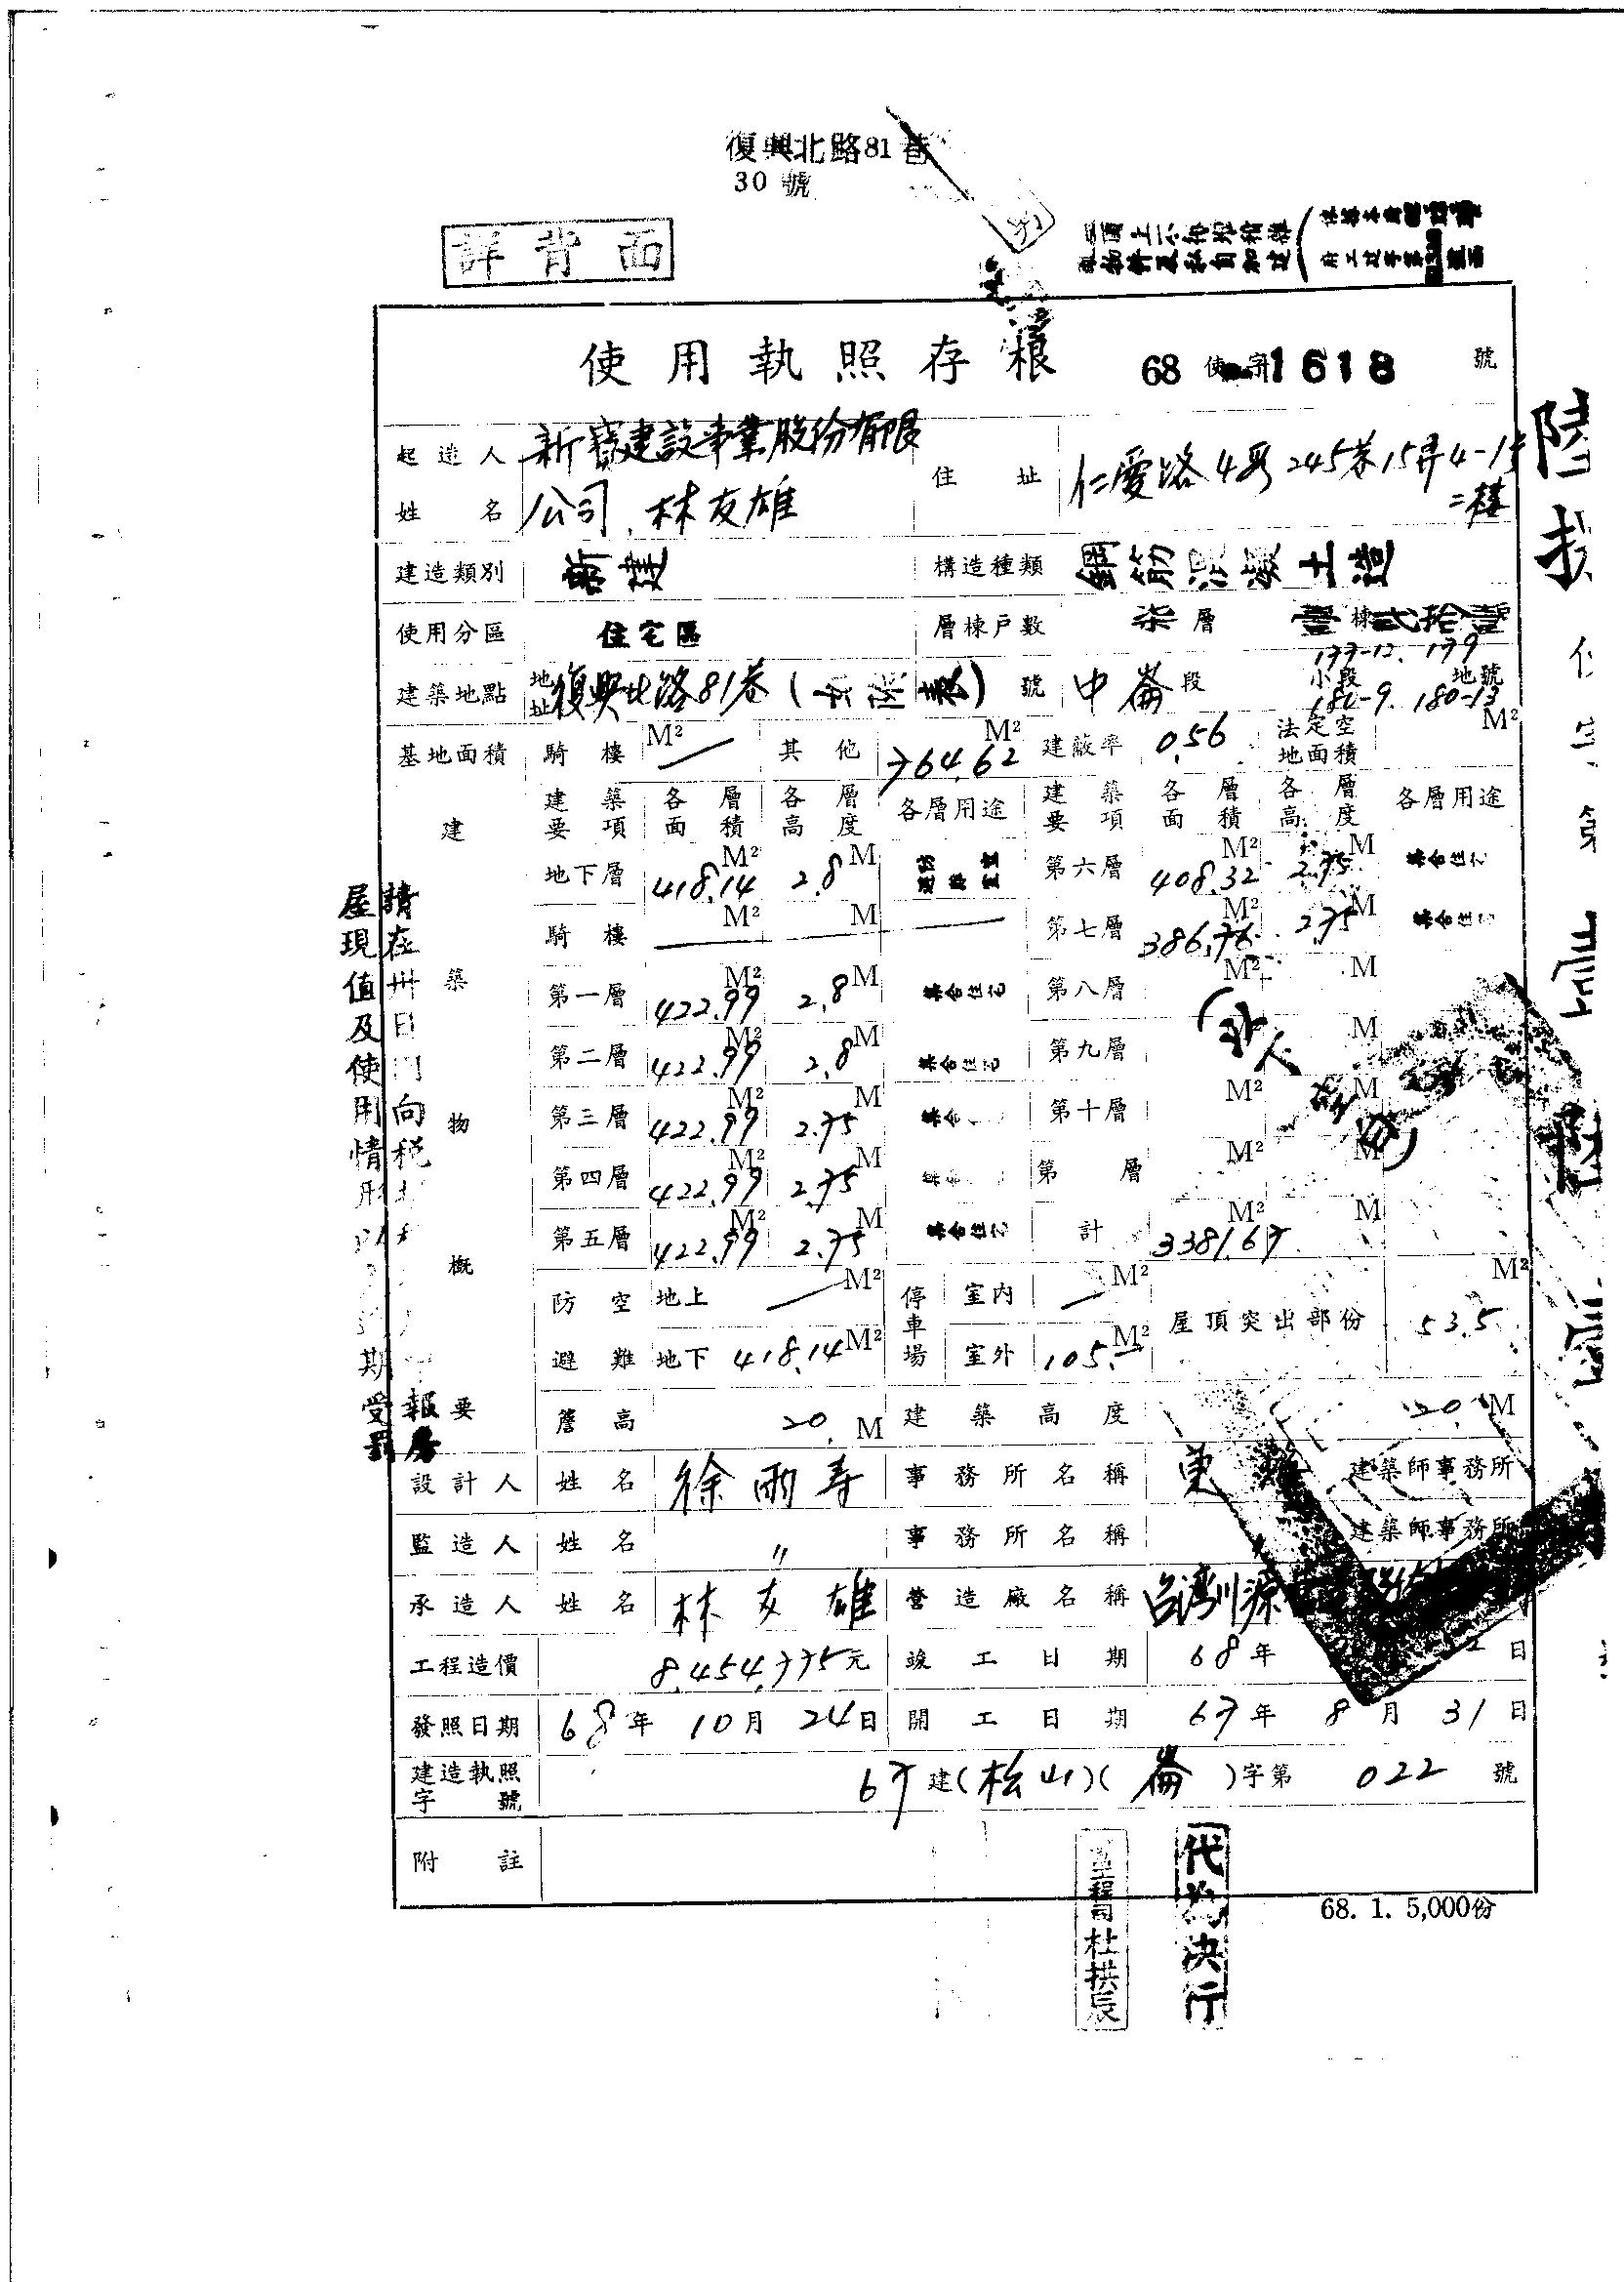 復興北路81巷
30號
詳背面
使用執照存根 68使字1618號
起造人姓名 新寶建設事業股份有限公司 林友雄 住址 仁愛路4段245巷15弄4-1號二樓
建造類別 新建 構造種類 鋼筋混凝土造
使用分區 住宅區 層棟戶數 柒層 壹棟貳拾壹
建築地點 地址 復興北路81巷 號 中崙段 小段 177-12. 179 180-9. 180-13 地號
基地面積 騎樓 M² — 其他 764.62 M² 建蔽率 0.56 法定空地面積 M²
建築物概要
建築要項 各層面積 各層高度 各層用途 建築要項 各層面積 各層高度 各層用途
地下層 418.14 M² 2.8 M 第六層 408.32 M² 2.75 M 集合住宅
騎樓 M² — M 第七層 386.76 M² 2.75 M 集合住宅
第一層 422.99 M² 2.8 M 集合住宅 第八層 M² M
第二層 422.99 M² 2.8 M 集合住宅 第九層 M
第三層 422.99 M² 2.75 M 集合 第十層 M² M
第四層 422.99 M² 2.75 M 第 層 M² M
第五層 422.99 M² 2.75 M 集合住宅 計 3381.67 M² M
防空避難 地上 — M² 停車場 室內 — M² 屋頂突出部份 53.5 M²
地下 418.14 M² 室外 105.— M²
簷高 20. M 建築高度 20. M
設計人 姓名 徐雨寿 事務所名稱 建築師事務所
監造人 姓名 〃 事務所名稱 建築師事務所
承造人 姓名 林友雄 營造廠名稱 台灣川源
工程造價 8,454,775元 竣工日期 68年 日
發照日期 68年10月24日 開工日期 67年8月31日
建造執照字號 67建(松山)(崙)字第022號
附註
68. 1. 5,000份
工程司杜拱辰
代為決行